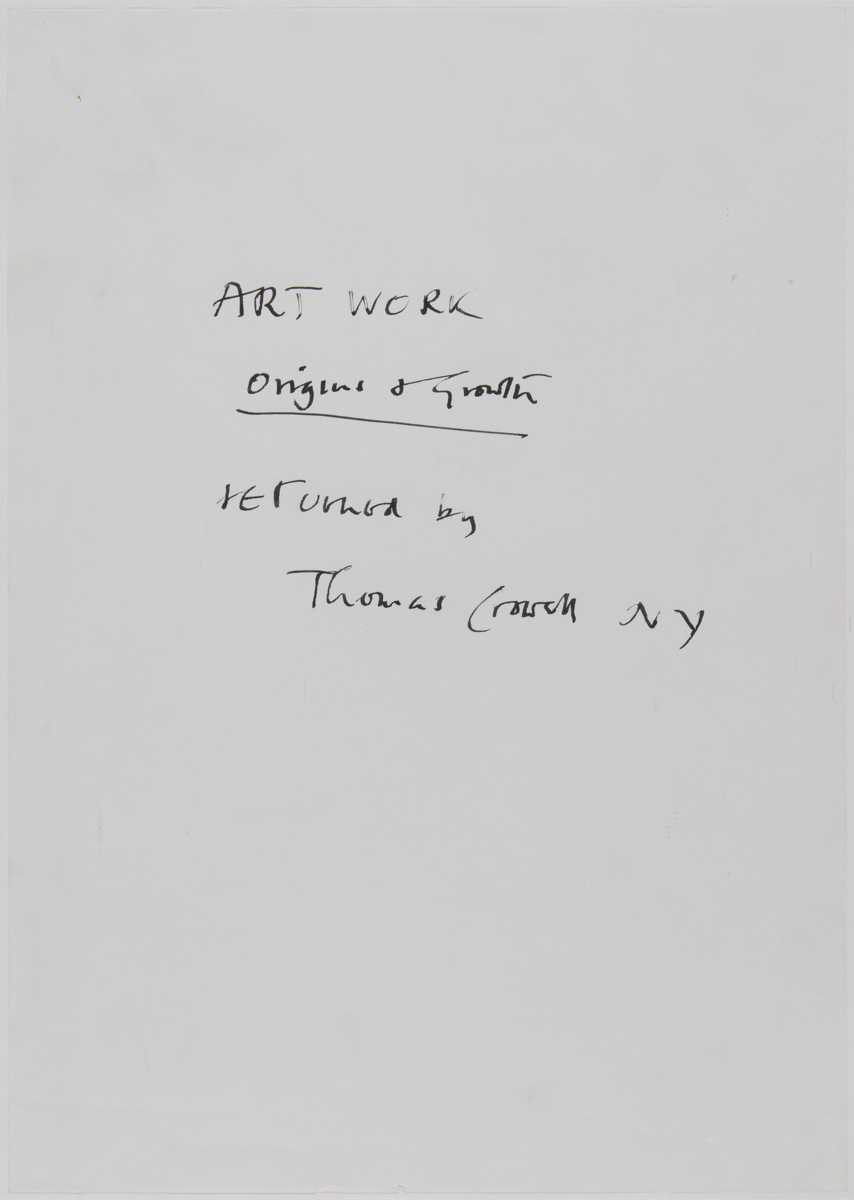 ART WORK
Origins & Growth
returned by
Thomas Crowell NY